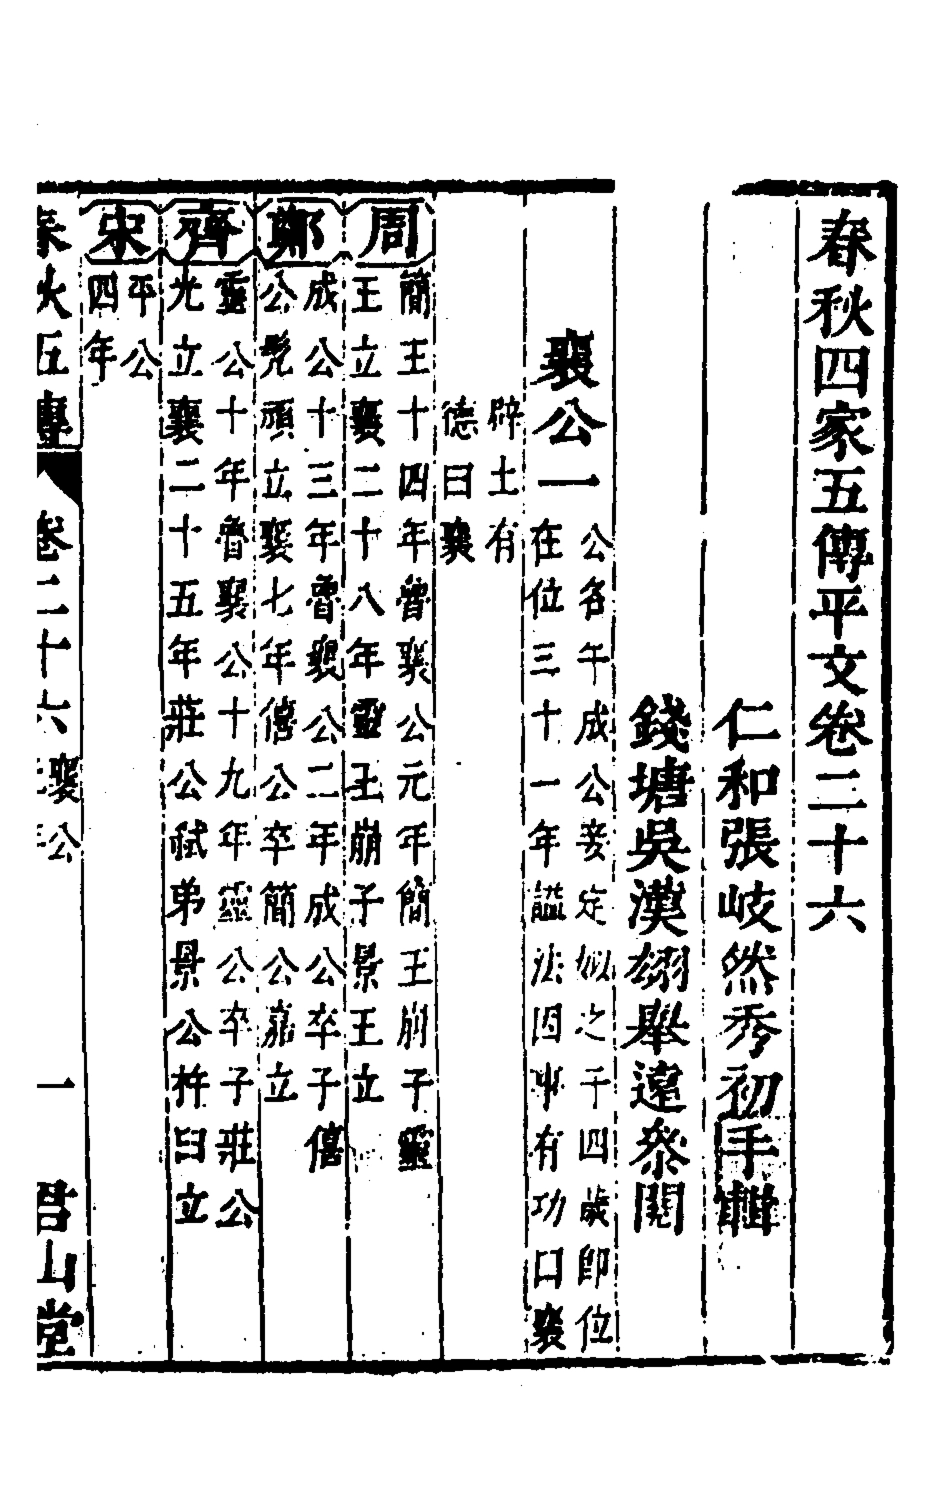 春秋四家五傳平文卷二十六
仁和張岐然秀初手輯
錢塘吳漢翊舉遠叅閱
襄公一
公名午成公妾定姒之子四歲即位
在位三十一年謚法因事有功曰襄
辟土有
德曰襄
周
簡王十四年魯襄公元年簡王崩子靈
王立襄二十八年靈王崩子景王立
鄭
成公十三年魯襄公二年成公卒子僖
公髠頑立襄七年僖公卒簡公嘉立
齊
靈公十年魯襄公十九年靈公卒子莊公
光立襄二十五年莊公弒弟景公杵臼立
宋
平公
四年
春秋五傳
卷二十六
襄公
一
君山堂